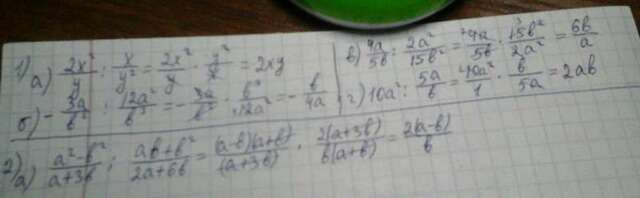 1) а) 2x²/y : x/y² = 2x²/y · y²/x = 2xy
б) - 3a/b² : 12a²/b³ = - 3a/b² · b³/12a² = - b/4a
в) 4a/5b : 2a²/15b² = 4a/5b · 15b²/2a² = 6b/a
г) 10a² : 5a/b = 10a²/1 · b/5a = 2ab
2) а) a²-b²/a+3b : ab+b²/2a+6b = (a-b)(a+b)/(a+3b) · 2(a+3b)/b(a+b) = 2(a-b)/b